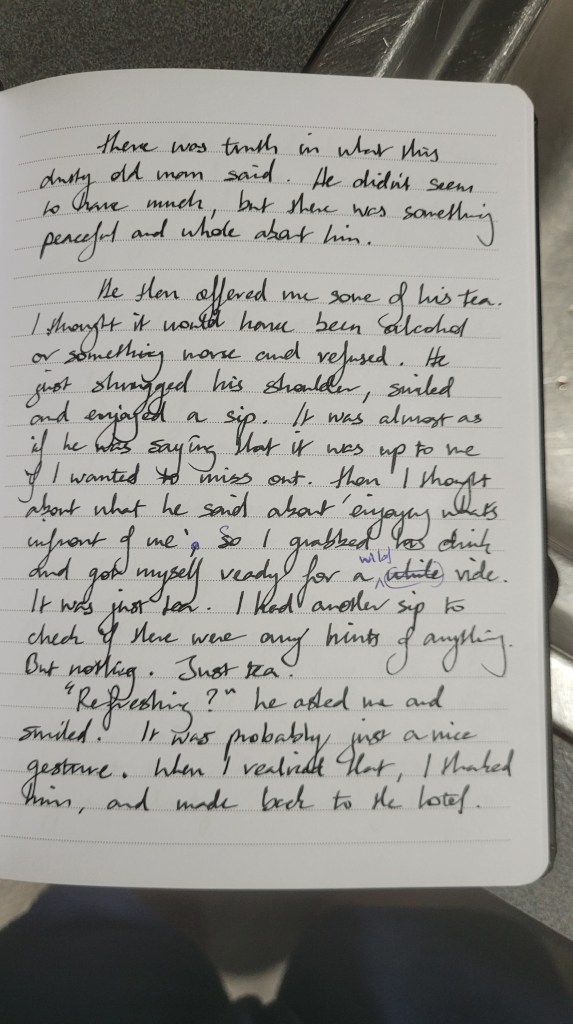 there was truth in what this
dusty old man said. He didn't seem
to have much, but there was something
peaceful and whole about him.
He then offered me some of his tea.
I thought it would have been alcohol
or something worse and refused. He
just shrugged his shoulder, smiled
and enjoyed a sip. It was almost as
if he was saying that it was up to me
if I wanted to miss out. then I thought
about what he said about 'enjoying whats
infront of me'. So I grabbed his drink
and got myself ready for a wild white ride.
It was just tea. I had another sip to
check if there were any hints of anything.
But nothing. Just tea.
"Refreshing?" he asked me and
smiled. It was probably just a nice
gesture. When I realised that, I thanked
him, and made back to the hotel.